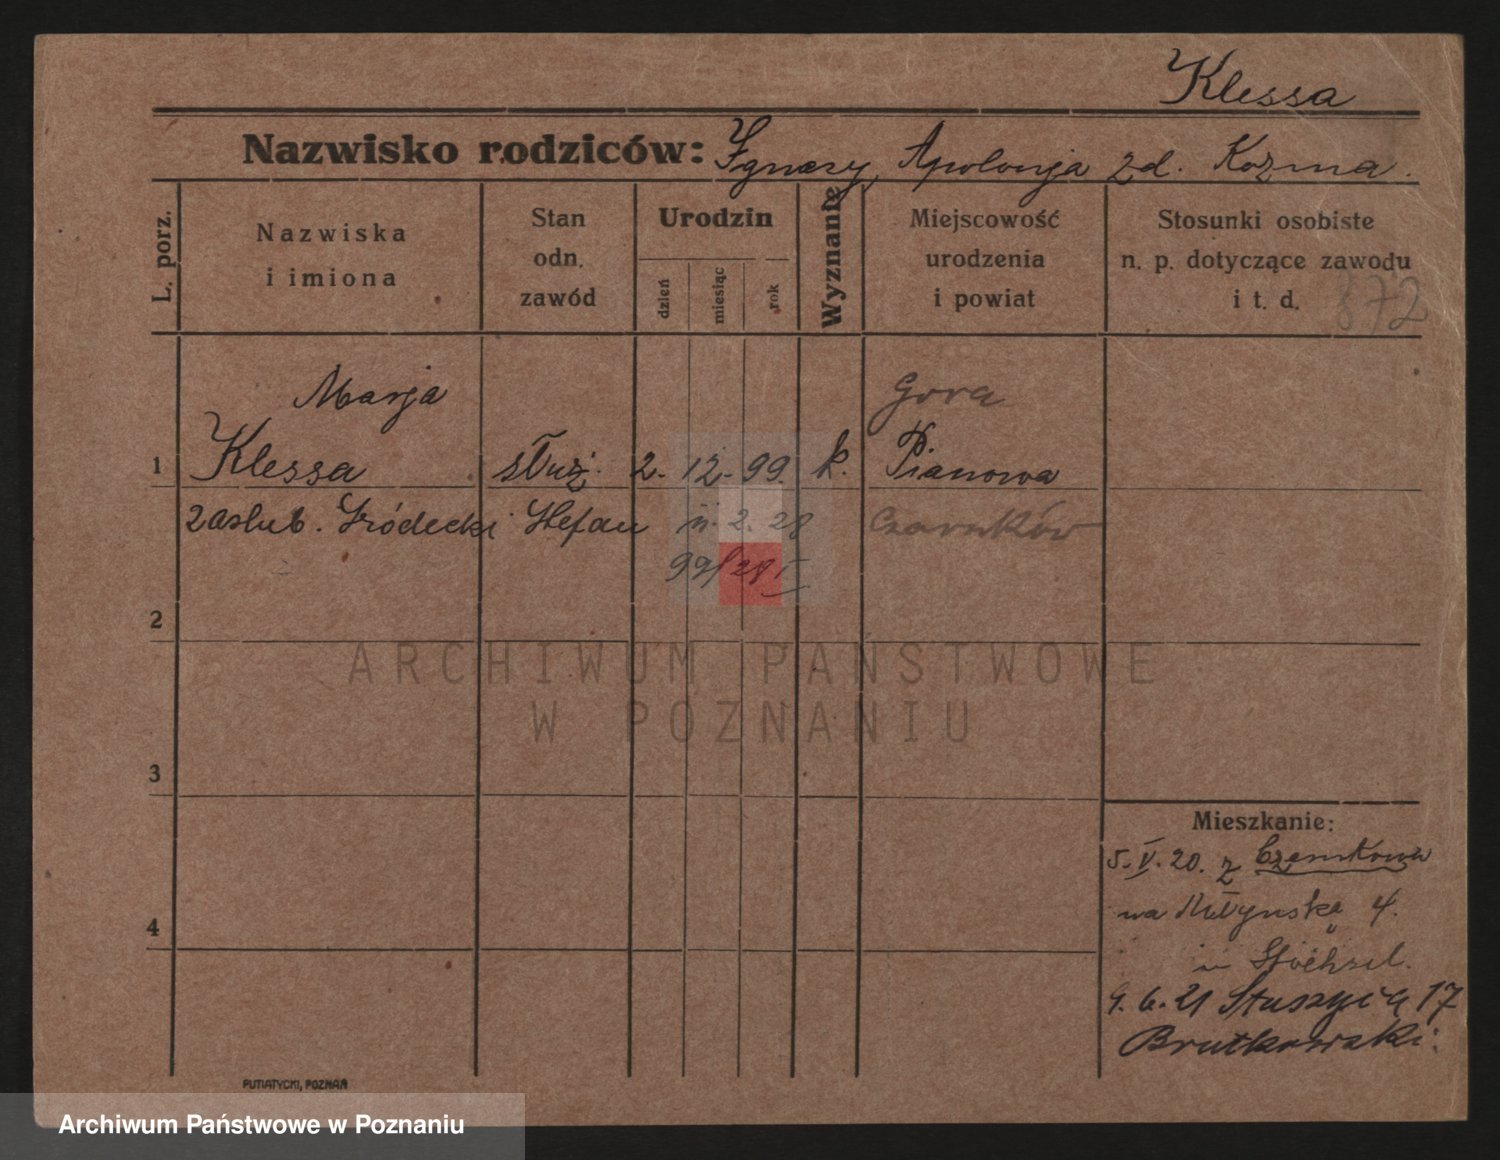 Klessa
Nazwisko rodziców: Ignacy, Apolonja zd. Kozma.
L. porz.
Nazwiska
i imiona
Stan
odn.
zawód
Urodzin
dzień
miesiąc
rok
Wyznanie
Miejscowość
urodzenia
i powiat
Stosunki osobiste
n. p. dotyczące zawodu
i t. d.
372
Marja
Gora
1 Klessa służ. 2. 12. 99. k. Pianowa
zaślub. Źródecki Stefan 11. 2. 28 Czarnków
99/28 I
2
ARCHIWUM PAŃSTWOWE
W POZNANIU
3
Mieszkanie:
5. V. 20. z Czarnkowa
na Młyńską 4.
4
u
9. 6. 21 Staszyca 17
Brutkowski.
PUTIATYCKI, POZNAŃ
Archiwum Państwowe w Poznaniu